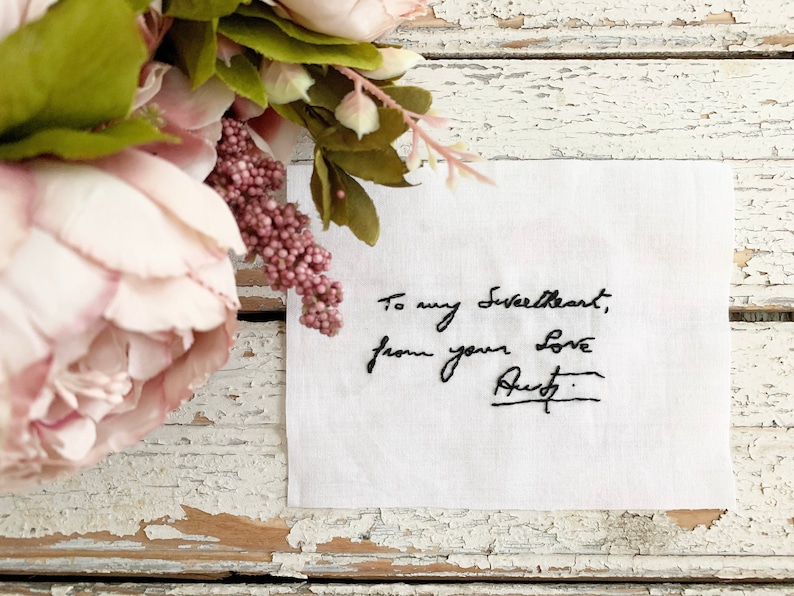 To my Sweetheart,
from your Love